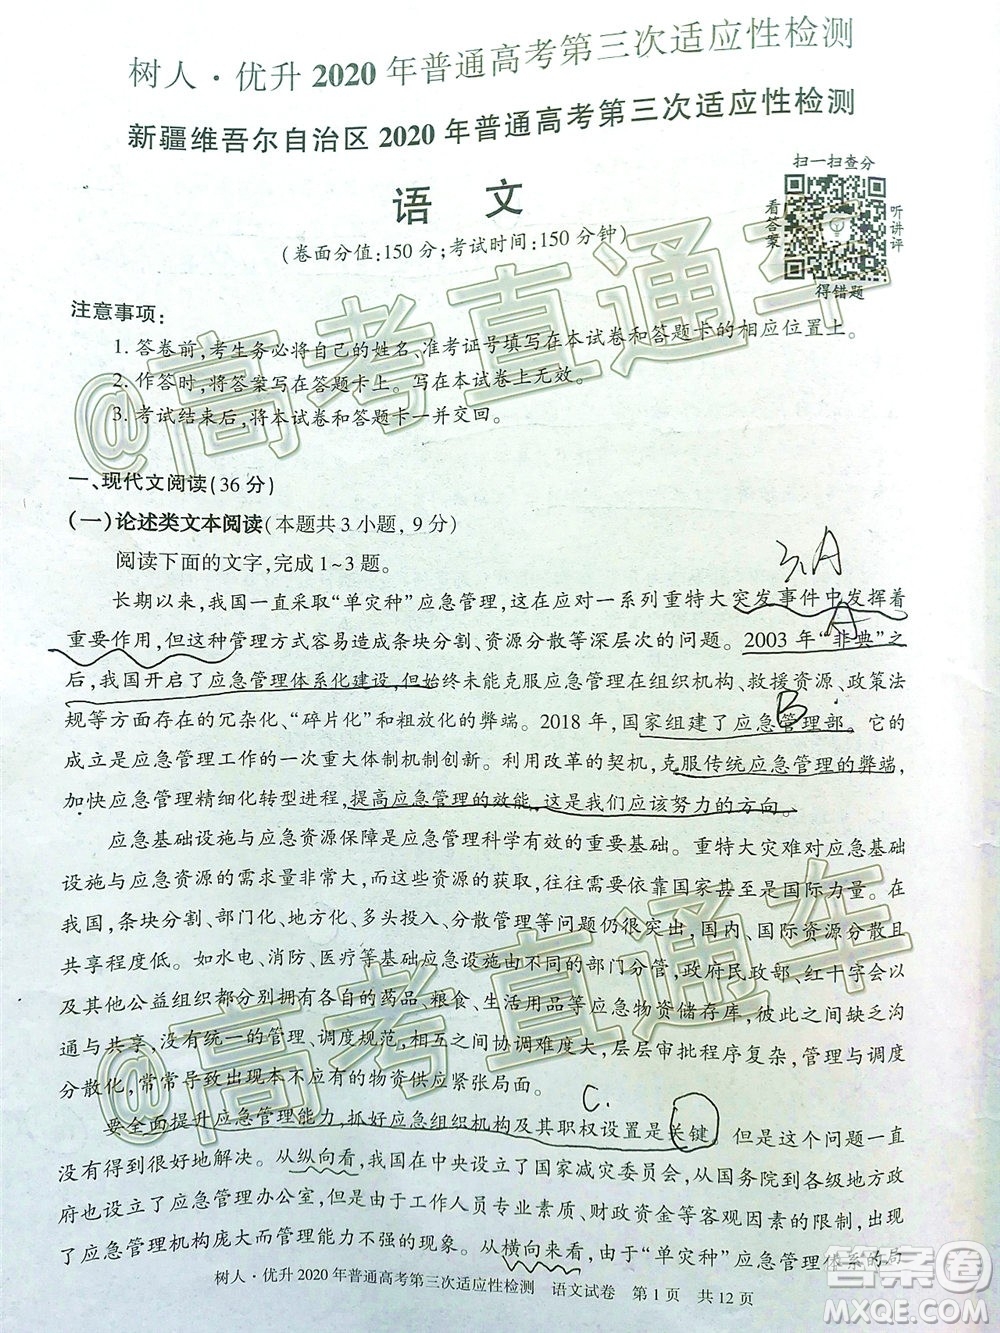 树人·优升2020年普通高考第三次适应性检测
新疆维吾尔自治区2020年普通高考第三次适应性检测
语 文
(卷面分值:150分;考试时间:150分钟)
扫一扫查分
看答案
听讲评
得错题
注意事项:
1. 答卷前,考生务必将自己的姓名、准考证号填写在本试卷和答题卡的相应位置上。
2. 作答时,将答案写在答题卡上。写在本试卷上无效。
3. 考试结束后,将本试卷和答题卡一并交回。
一、现代文阅读(36分)
(一)论述类文本阅读(本题共3小题,9分)
阅读下面的文字,完成1~3题。
A
长期以来,我国一直采取“单灾种”应急管理,这在应对一系列重特大突发事件中发挥着
重要作用,但这种管理方式容易造成条块分割、资源分散等深层次的问题。2003年“非典”之
A
后,我国开启了应急管理体系化建设,但始终未能克服应急管理在组织机构、救援资源、政策法
规等方面存在的冗杂化、“碎片化”和粗放化的弊端。2018年,国家组建了应急管理部。它的
B
成立是应急管理工作的一次重大体制机制创新。利用改革的契机,克服传统应急管理的弊端,
加快应急管理精细化转型进程,提高应急管理的效能,这是我们应该努力的方向。
应急基础设施与应急资源保障是应急管理科学有效的重要基础。重特大灾难对应急基础
设施与应急资源的需求量非常大,而这些资源的获取,往往需要依靠国家甚至是国际力量。在
我国,条块分割、部门化、地方化、多头投入、分散管理等问题仍很突出,国内、国际资源分散且
共享程度低。如水电、消防、医疗等基础应急设施由不同的部门分管,政府民政部、红十字会以
及其他公益组织都分别拥有各自的药品、粮食、生活用品等应急物资储存库,彼此之间缺乏沟
通与共享,没有统一的管理、调度规范,相互之间协调难度大,层层审批程序复杂,管理与调度
分散化,常常导致出现本不应有的物资供应紧张局面。
C.
要全面提升应急管理能力,抓好应急组织机构及其职权设置是关键。但是这个问题一直
没有得到很好地解决。从纵向看,我国在中央设立了国家减灾委员会,从国务院到各级地方政
府也设立了应急管理办公室,但是由于工作人员专业素质、财政资金等客观因素的限制,出现
了应急管理机构庞大而管理能力不强的现象。从横向来看,由于“单灾种”应急管理体系的局
树人·优升2020年普通高考第三次适应性检测 语文试卷 第1页 共12页
@高考直通车
@高考直通车
答案圈
MXQE.COM